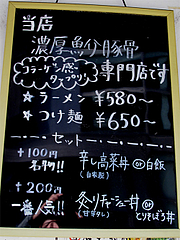 当店
濃厚魚介豚骨
コラーゲン感
タップリ
専門店です
☆ラーメン ¥580〜
☆つけ麺 ¥650〜
セット
+100円
名物!!
辛し高菜丼 or 白飯
(自家製)
+200円
一番人気!!
炙りチャーシュー丼 or
(甘辛タレ)
とりそぼろ丼